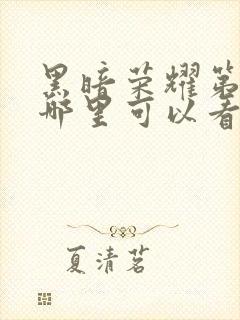 黑暗荣耀第
哪里可以看
夏清茗